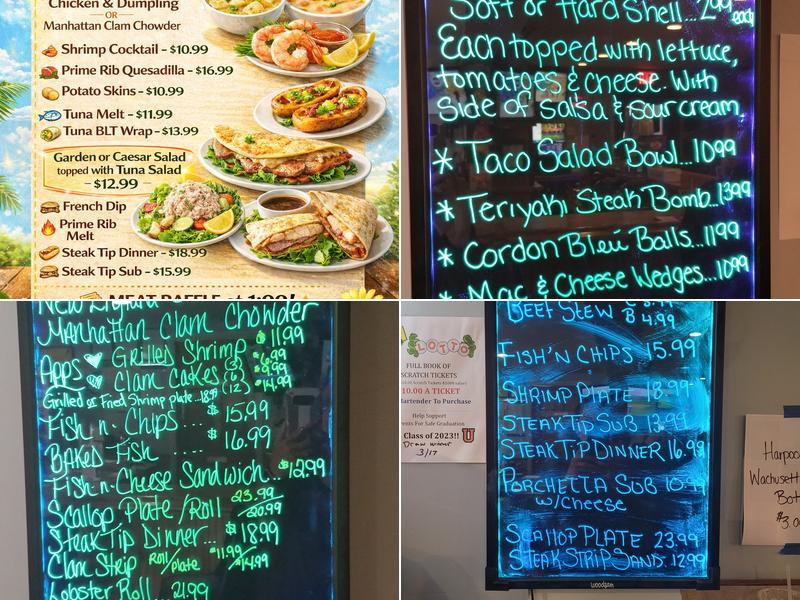 Chicken & Dumpling
OR
Manhattan Clam Chowder
Shrimp Cocktail - $10.99
Prime Rib Quesadilla - $16.99
Potato Skins - $10.99
Tuna Melt - $11.99
Tuna BLT Wrap - $13.99
Garden or Caesar Salad
topped with Tuna Salad
- $12.99 -
French Dip
Prime Rib
Melt
Steak Tip Dinner - $18.99
Steak Tip Sub - $15.99
MEAT RAFFLE at 1:00!
Soft or Hard Shell...2.99 each
Each topped with lettuce,
tomatoes & cheese. With
Side of Salsa & Sour cream
* Taco Salad Bowl...10.99
* Teriyaki Steak Bomb..13.99
* Cordon Bleu Balls...11.99
* Mac & Cheese Wedges...10.99
New England
Manhattan Clam Chowder
Apps Grilled Shrimp $11.99
Clam Cakes (3) (6) (12) $9.99 $14.99
Grilled or Fried Shrimp plate..18.99
Fish n. Chips... $15.99
Baked Fish .... $16.99
Fish n. Cheese Sandwich... $12.99
Scallop Plate/Roll 23.99/20.99
Steak Tip Dinner... $18.99
Clam Strip Roll/plate $11.99/$14.99
Lobster Roll... 21.99
Beef Stew
B 4.99
Fish'n Chips 15.99
Shrimp Plate 18.99
Steak Tip Sub 13.99
Steak Tip Dinner 16.99
Porchetta Sub 10.99
w/cheese
Scallop Plate 23.99
Steak Strip Sand. 12.99
woodsam
LOTTO
FULL BOOK OF
SCRATCH TICKETS
10.00 A TICKET
Bartender To Purchase
Help Support
Events For Safe Graduation
Class of 2023!!
Draw winner
3/17
Harpoo
Wachusett
Bot
$3.0